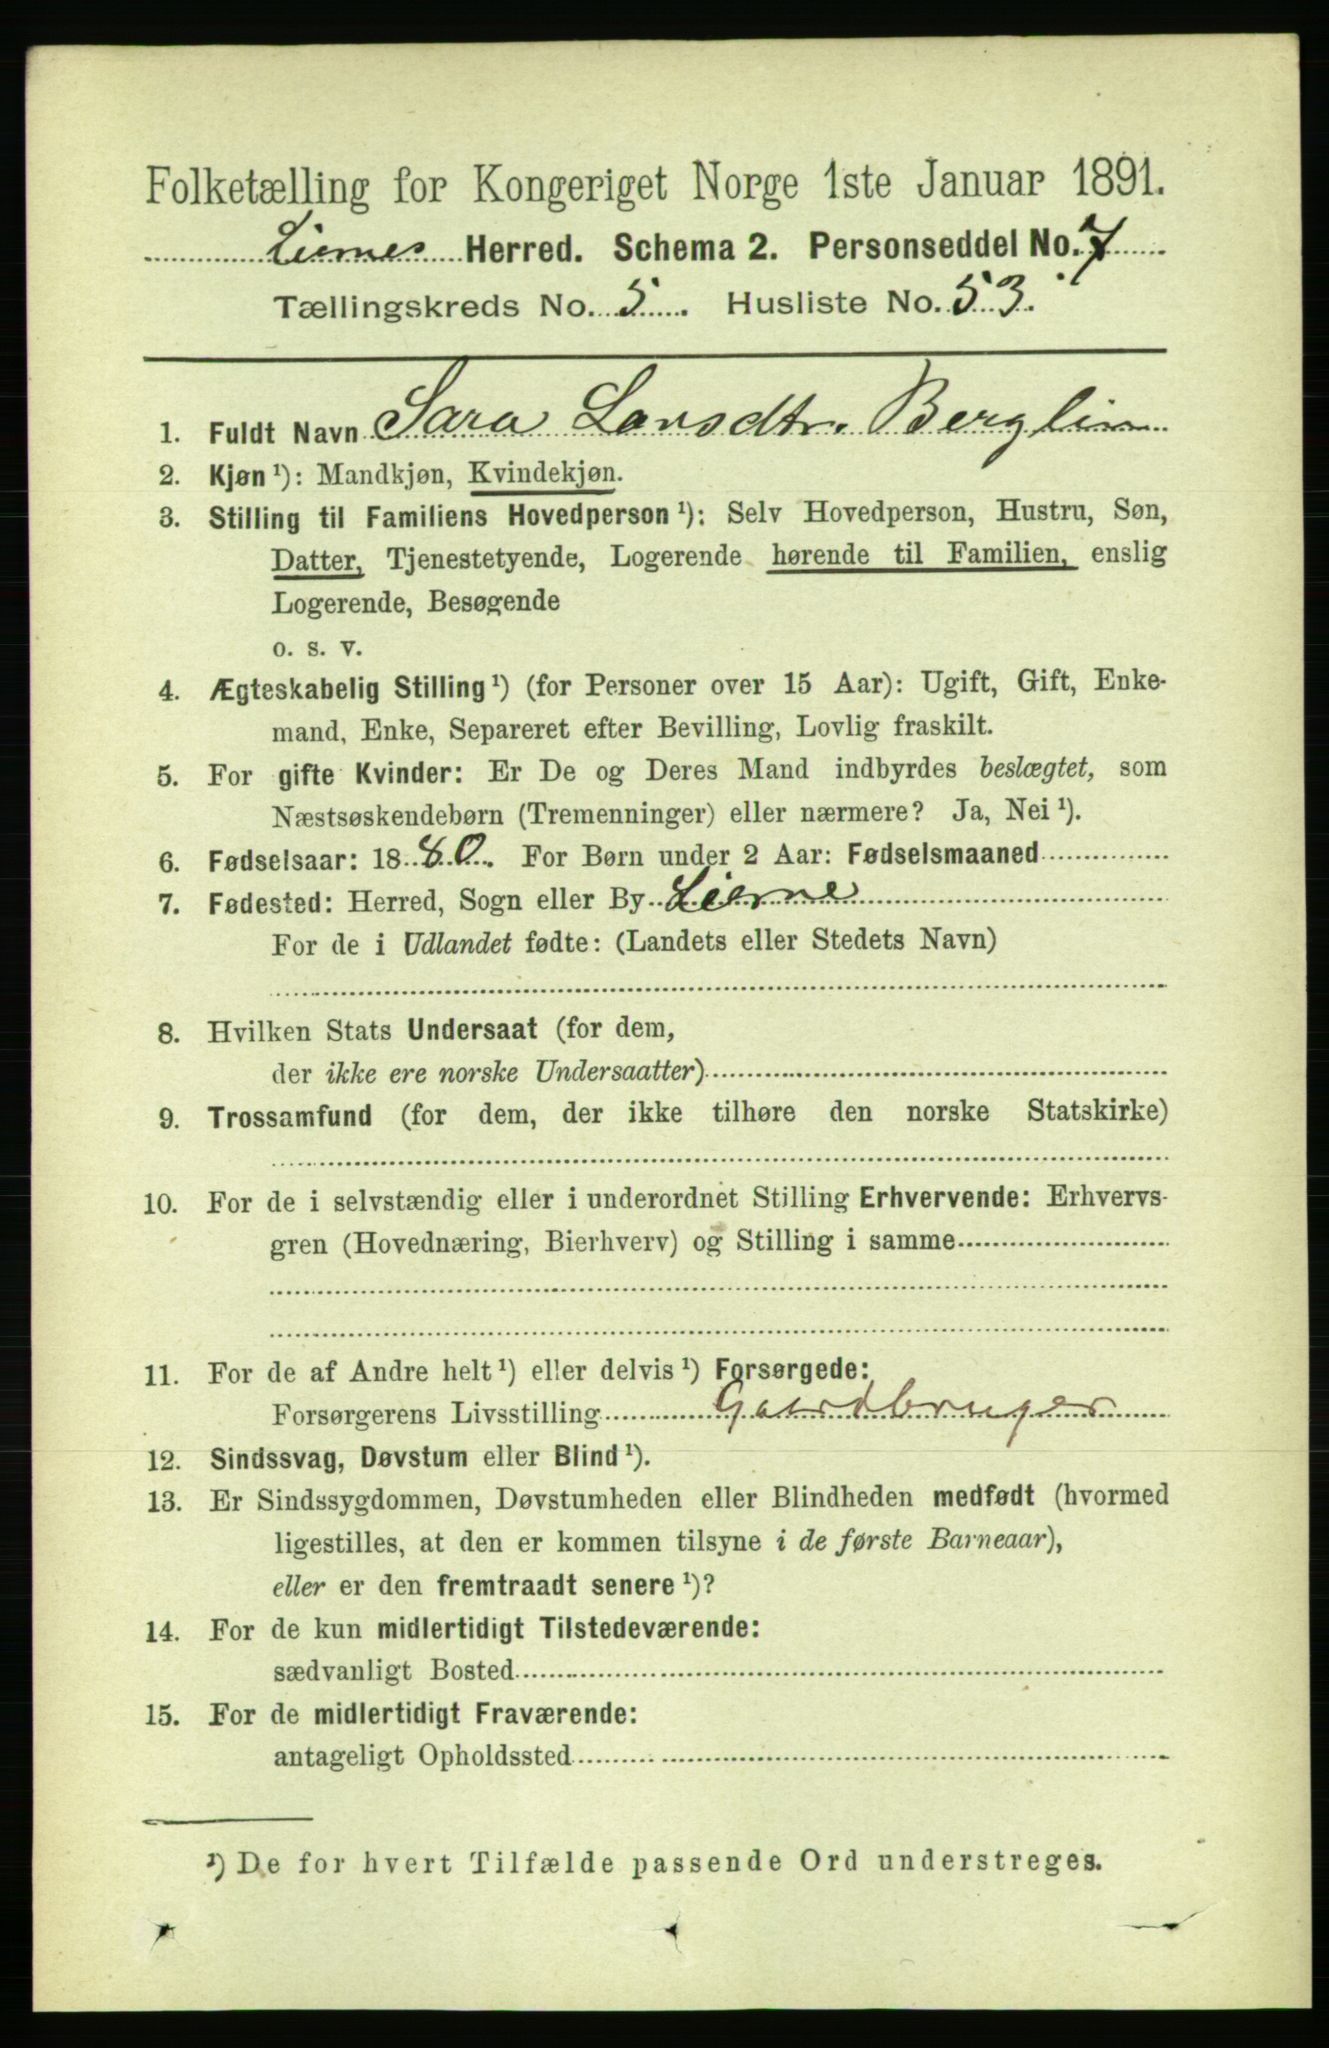 Folketælling for Kongeriget Norge 1ste Januar 1891.
Liernes Herred. Schema 2. Personseddel No. 7
Tællingskreds No. 5. Husliste No. 53.
1. Fuldt Navn Sara Larsdtr. Berglim
2. Kjøn ¹): Mandkjøn, Kvindekjøn.
3. Stilling til Familiens Hovedperson ¹): Selv Hovedperson, Hustru, Søn,
Datter, Tjenestetyende, Logerende hørende til Familien, enslig
Logerende, Besøgende
o. s. v.
4. Ægteskabelig Stilling ¹) (for Personer over 15 Aar): Ugift, Gift, Enke-
mand, Enke, Separeret efter Bevilling, Lovlig fraskilt.
5. For gifte Kvinder: Er De og Deres Mand indbyrdes beslægtet, som
Næstsøskendebørn (Tremenninger) eller nærmere? Ja, Nei ¹).
6. Fødselsaar: 1880. For Børn under 2 Aar: Fødselsmaaned
7. Fødested: Herred, Sogn eller By Lierne
For de i Udlandet fødte: (Landets eller Stedets Navn)
8. Hvilken Stats Undersaat (for dem,
der ikke ere norske Undersaatter)
9. Trossamfund (for dem, der ikke tilhøre den norske Statskirke)
10. For de i selvstændig eller i underordnet Stilling Erhvervende: Erhvervs-
gren (Hovednæring, Bierhverv) og Stilling i samme
11. For de af Andre helt ¹) eller delvis ¹) Forsørgede:
Forsørgerens Livsstilling Gaardbruger
12. Sindssvag, Døvstum eller Blind ¹).
13. Er Sindssygdommen, Døvstumheden eller Blindheden medfødt (hvormed
ligestilles, at den er kommen tilsyne i de første Barneaar),
eller er den fremtraadt senere ¹)?
14. For de kun midlertidigt Tilstedeværende:
sædvanligt Bosted
15. For de midlertidigt Fraværende:
antageligt Opholdssted
¹) De for hvert Tilfælde passende Ord understreges.